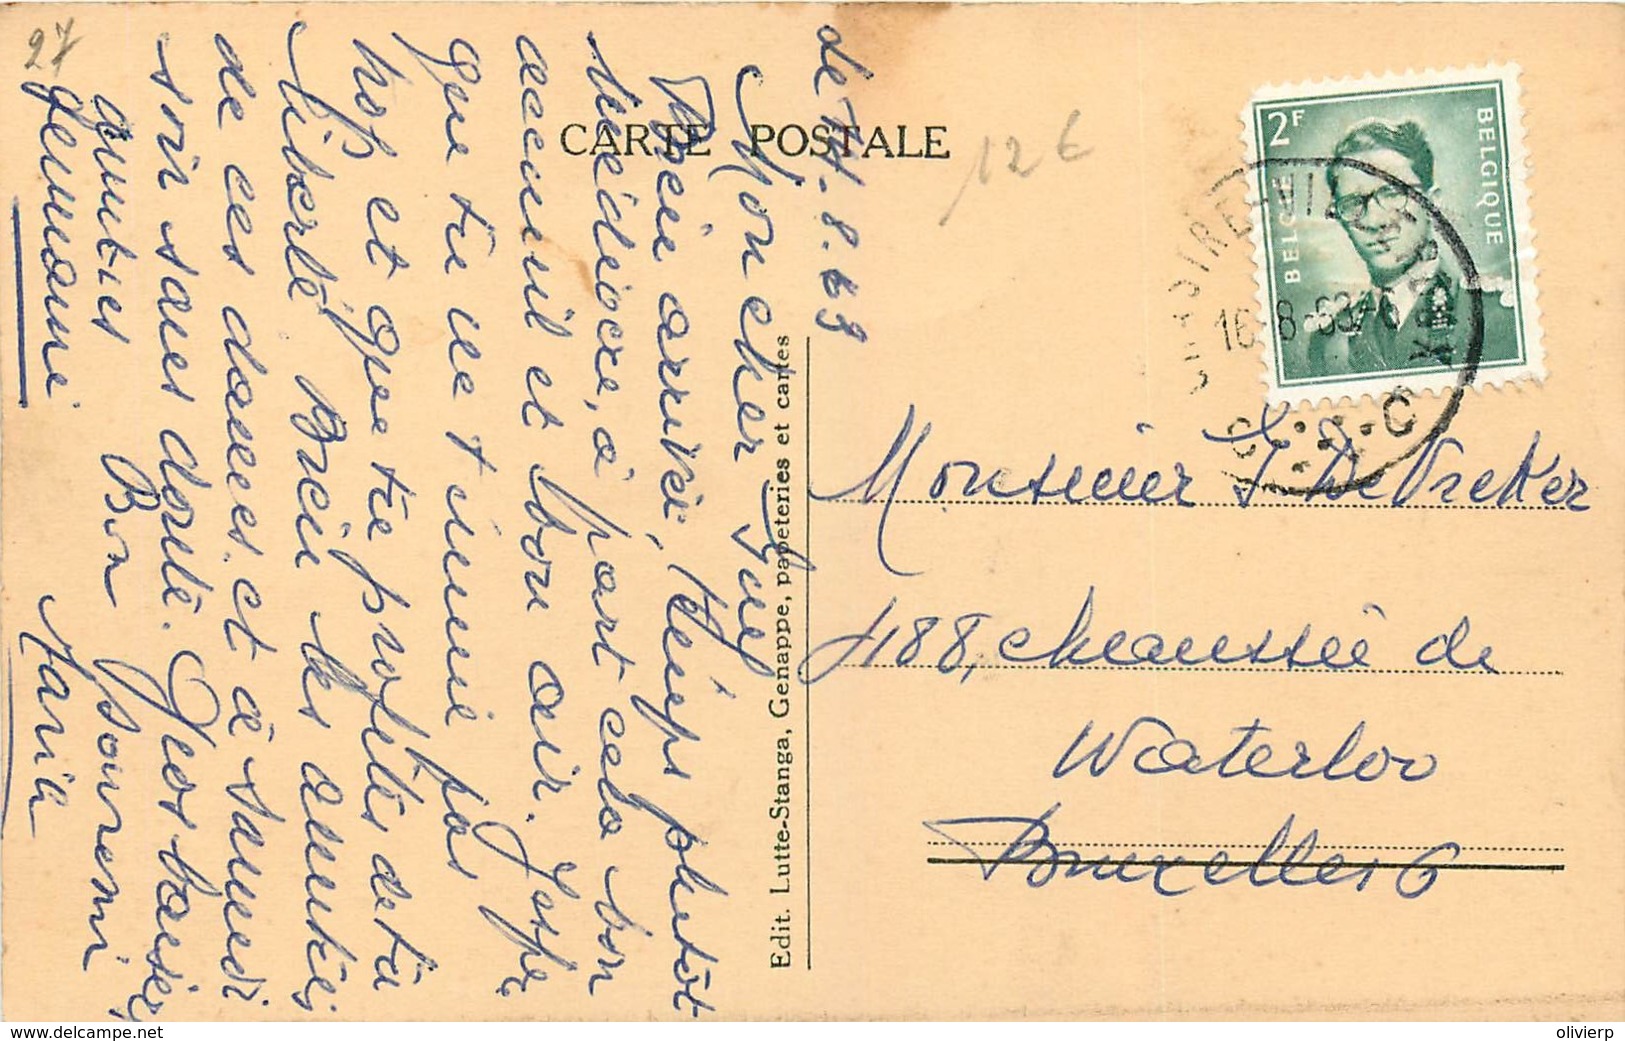 27
le 14.8.63
Mon cher Juul
Bien arrivé, temps plutôt
médiocre, à part cela bon
accueil et bon air. J'espère
que tu ne t'ennuie pas
trop et que tu profites de ta
liberté. Bien les amitiés
de ces dames et à samedi
soir sans doute. Gros baisers
amities Bon souvenir
Germaine
Maria
CARTE POSTALE
12 €
Edit. Lutte-Stanga, Genappe, papeteries et cartes
2F
BELGIE
BELGIQUE
16-8-63
C
C
Monsieur J. De Vreker
1188, chaussée de
Waterloo
Bruxelles 6
www.delcampe.net
olivierp